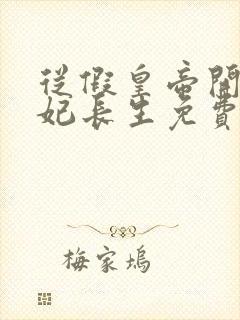 從假皇帝開
妃長生免費
梅家塢